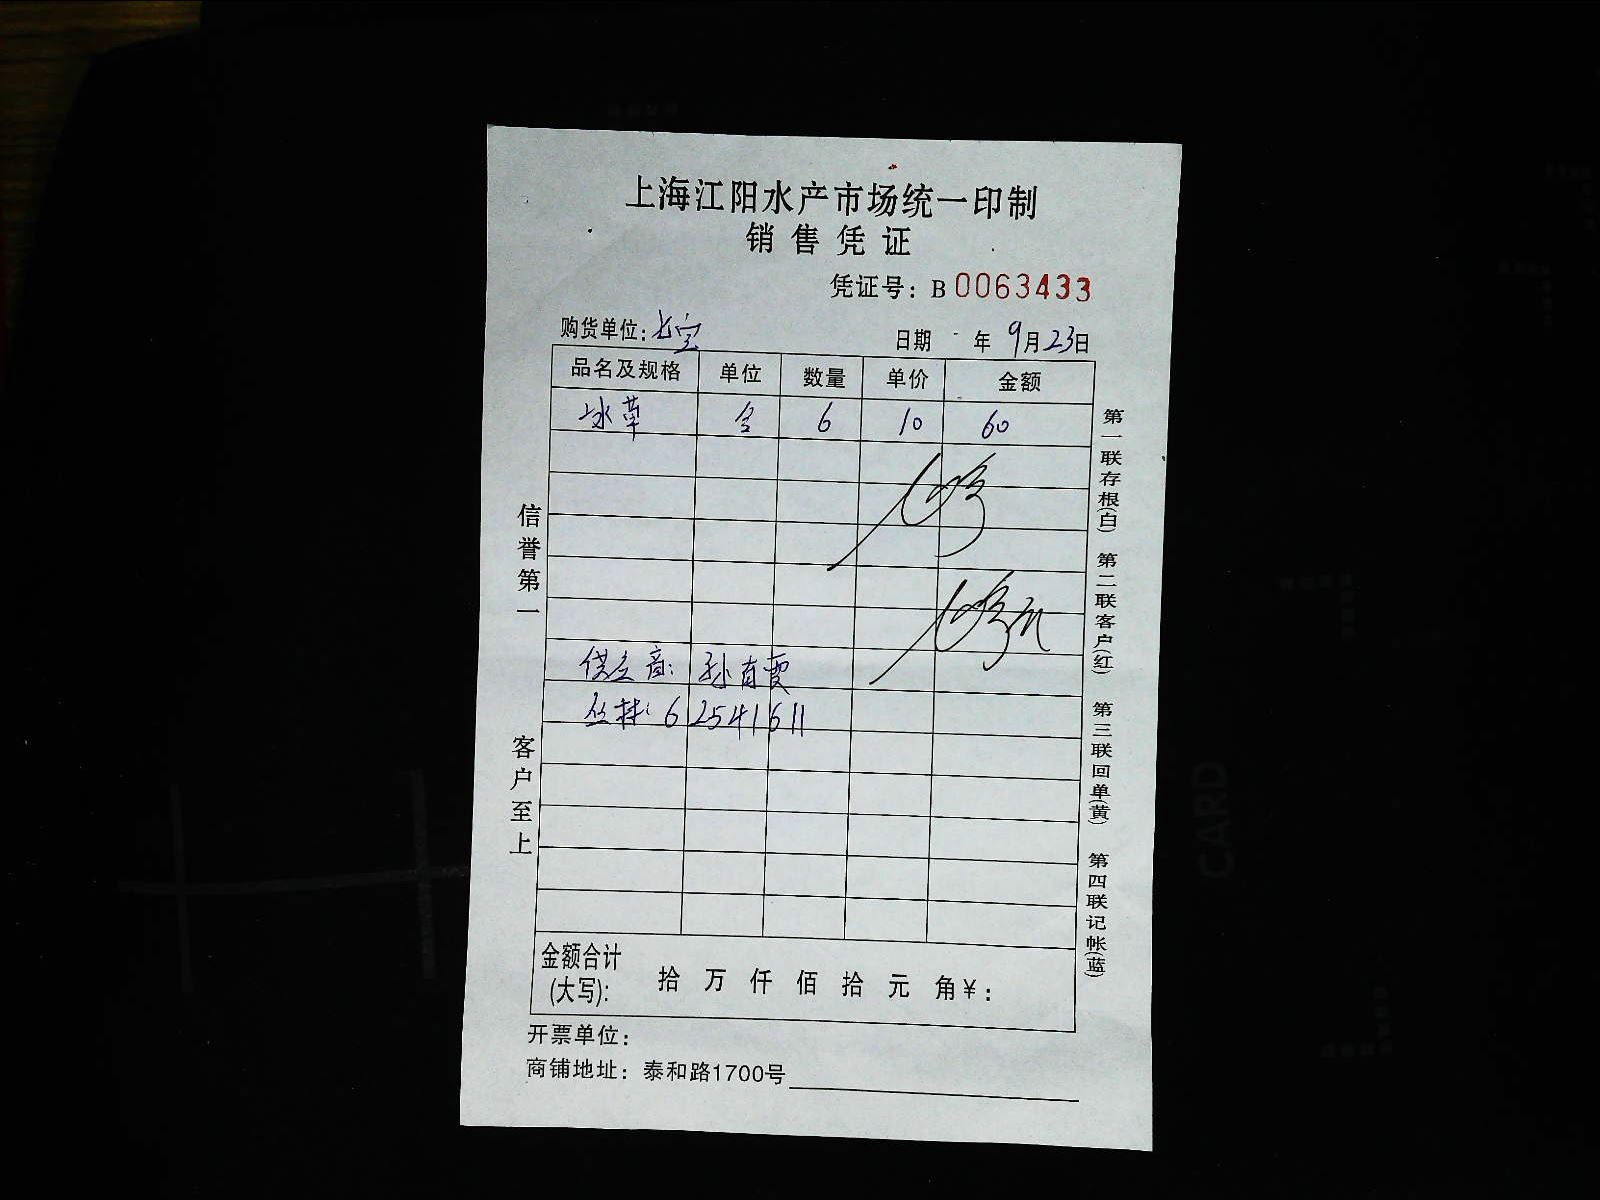 上海江阳水产市场统一印制
销售凭证
凭证号：B 0063433
购货单位：长宝
日期 年 9月23日
品名及规格 单位 数量 单价 金额
冰草 合 6 10 60
孙有霞
62541611
信誉第一
客户至上
第一联存根(白) 第二联客户(红) 第三联回单(黄) 第四联记帐(蓝)
金额合计(大写)： 拾 万 仟 佰 拾 元 角 ¥：
开票单位：
商铺地址：泰和路1700号
CARD